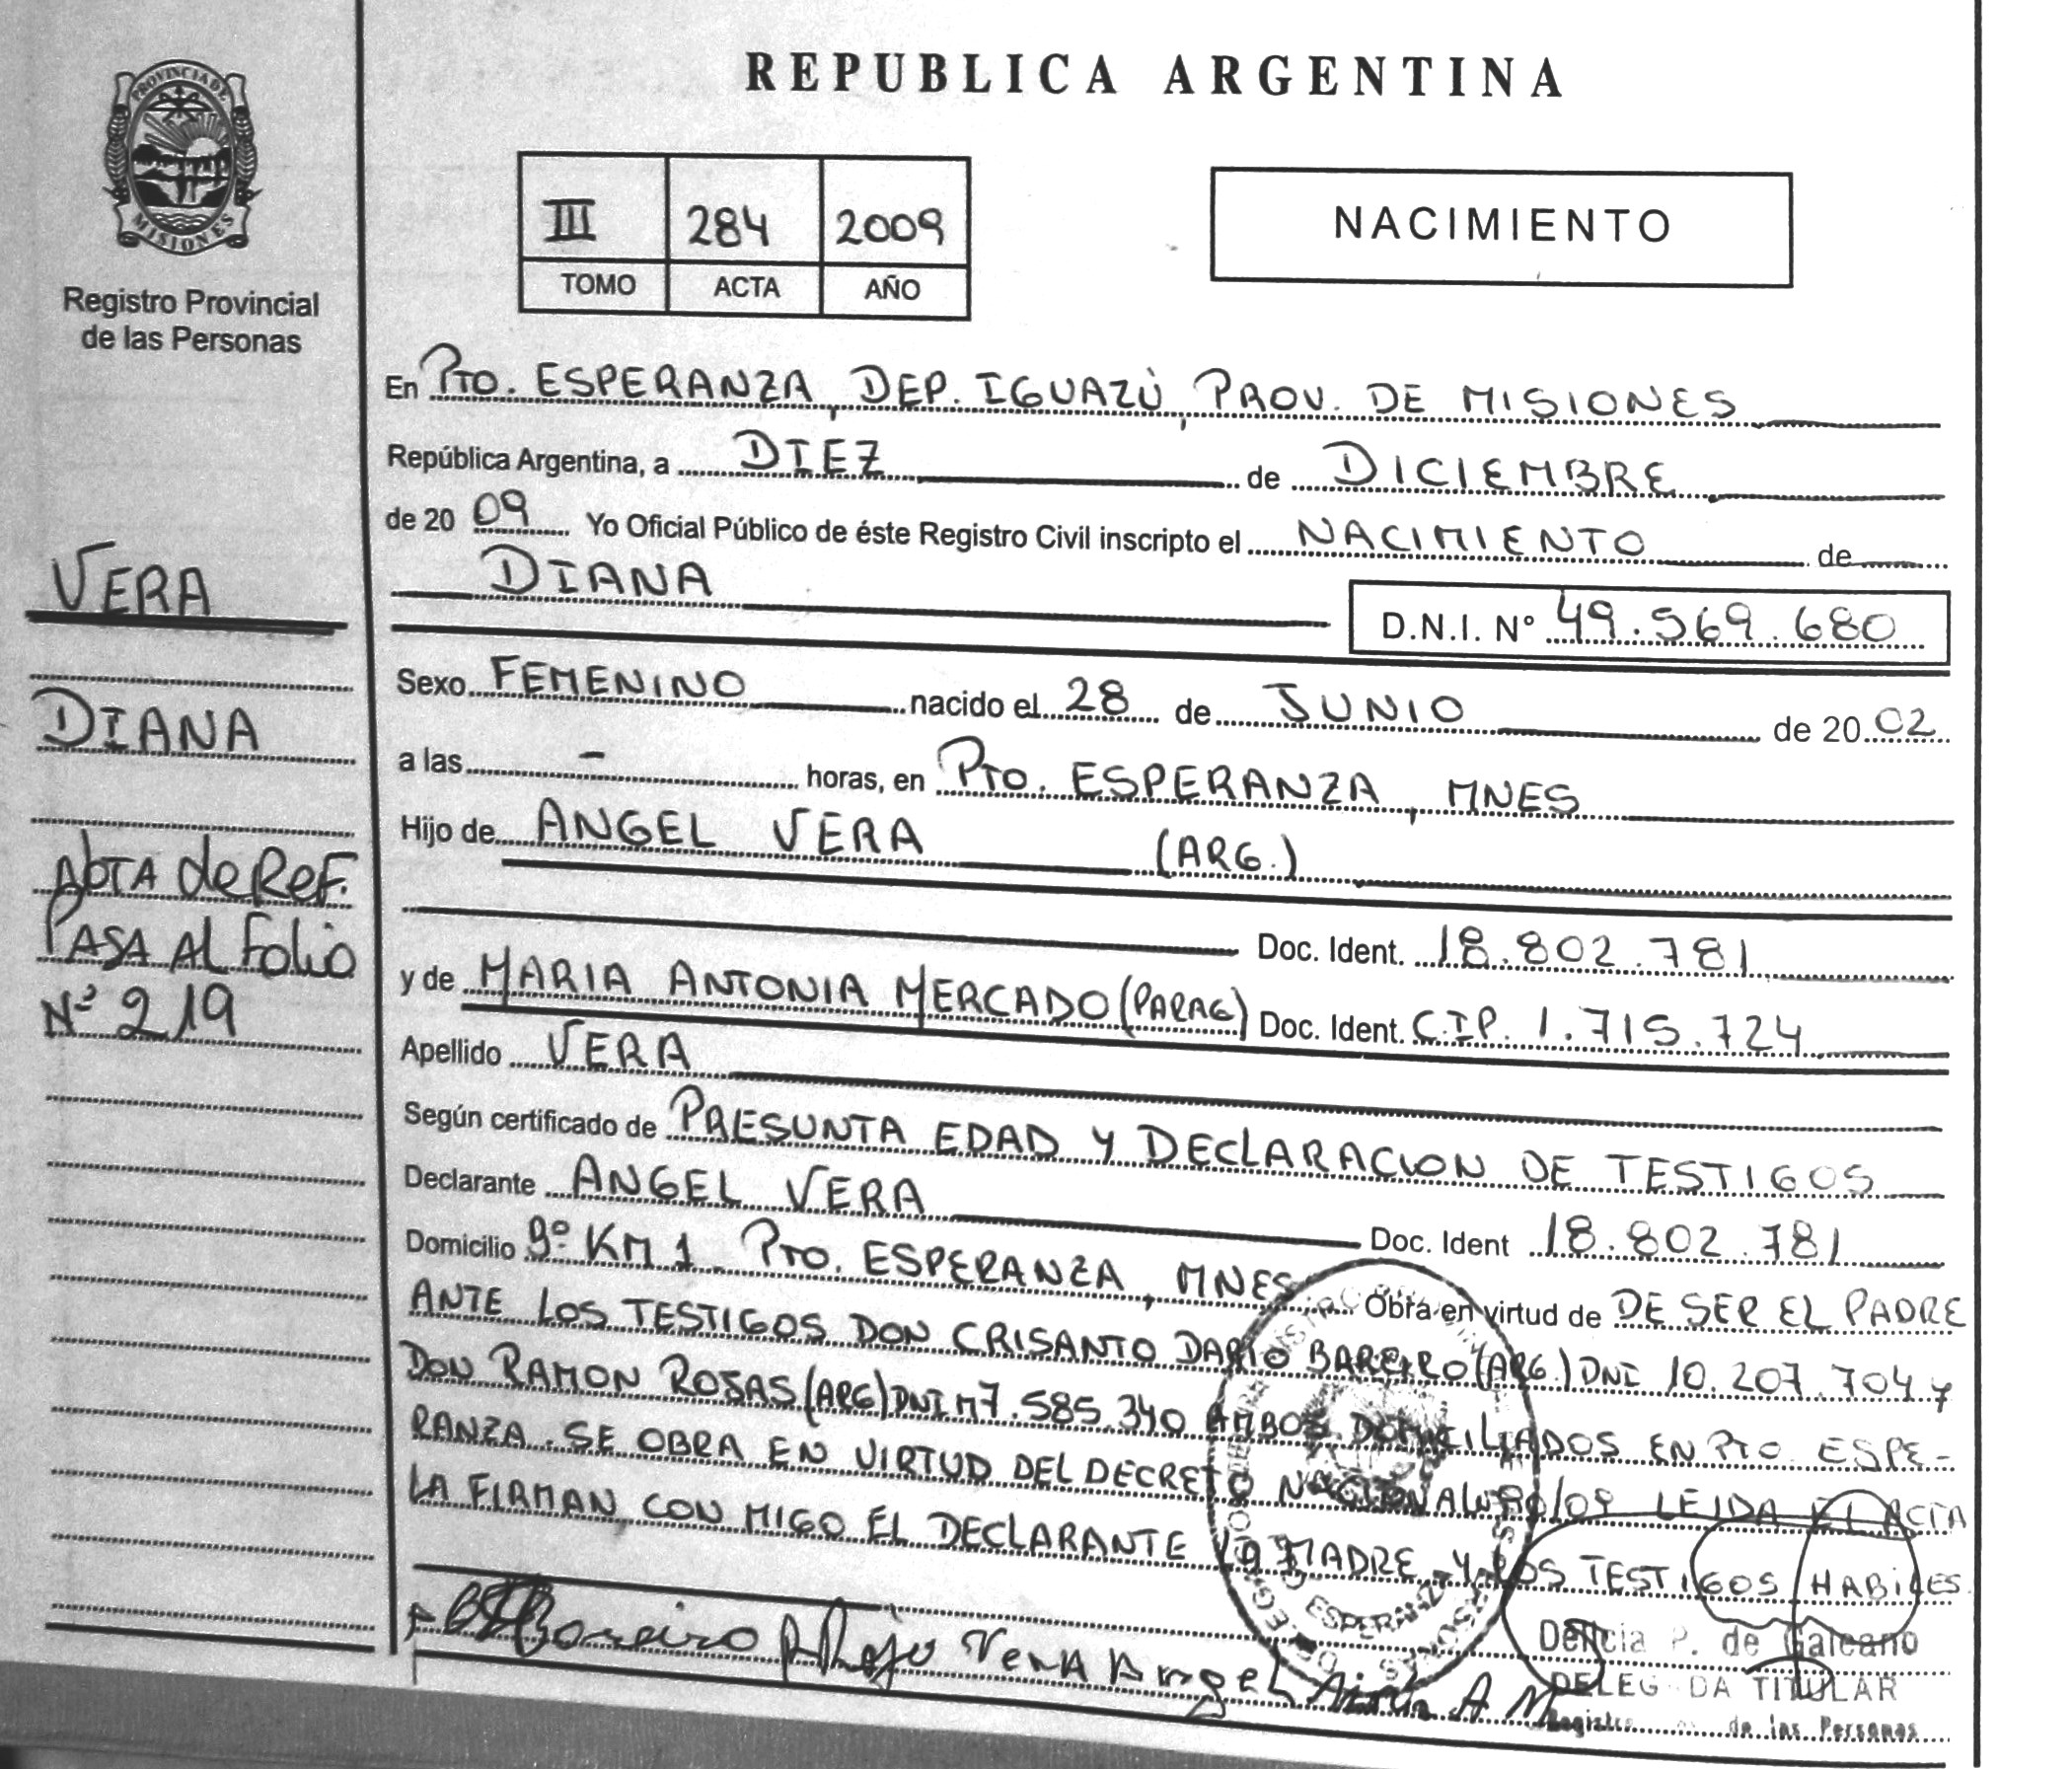 REPUBLICA ARGENTINA
PROVINCIA DE
MISIONES
Registro Provincial
de las Personas
III 284 2009
TOMO ACTA AÑO
NACIMIENTO
En PTO. ESPERANZA, DEP. IGUAZÚ, PROV. DE MISIONES
República Argentina, a DIEZ de DICIEMBRE
de 20 09 Yo Oficial Público de éste Registro Civil inscripto el NACIMIENTO de
DIANA
D.N.I. Nº 49.569.680
VERA
DIANA
NOTA de REF.
PASA AL FOLIO
Nº 219
Sexo FEMENINO nacido el 28 de JUNIO de 20 02
a las - horas, en PTO. ESPERANZA, MNES
Hijo de ANGEL VERA (ARG.)
Doc. Ident. 18.802.781
y de MARIA ANTONIA MERCADO (PARAG) Doc. Ident. C.I.P. 1.715.724
Apellido VERA
Según certificado de PRESUNTA EDAD Y DECLARACION DE TESTIGOS
Declarante ANGEL VERA Doc. Ident 18.802.781
Domicilio 9º KM 1 PTO. ESPERANZA, MNES Obra en virtud de DE SER EL PADRE
ANTE LOS TESTIGOS DON CRISANTO DARIO BAREIRO (ARG.) DNI 10.207.704 Y
DON RAMON ROJAS (ARG) DNI M7.585.340 AMBOS DOMICILIADOS EN PTO. ESPE-
RANZA. SE OBRA EN VIRTUD DEL DECRETO NACIONAL 90/09 LEIDA EL ACTA
LA FIRMAN CON MIGO EL DECLARANTE LA MADRE Y LOS TESTIGOS HABILES
ESPERANZA
Bareiro Rojas Vera Angel
Delicia P. de Galeano
DELEGADA TITULAR
de las Personas